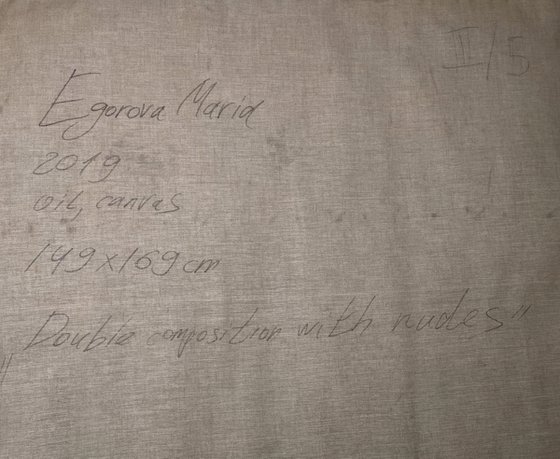 II/5
Egorova Maria
2019
oil, canvas
149x169 cm
"Double composition with nudes"